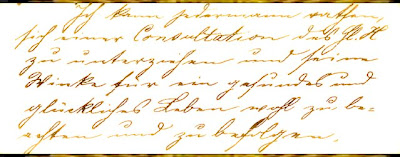 "Ich kann jedermann rathen,
sich einer Consultation des H. H
zu unterziehen und seine
Winke für ein gesundes und
glückliches Leben wohl zu be-
achten und zu befolgen.